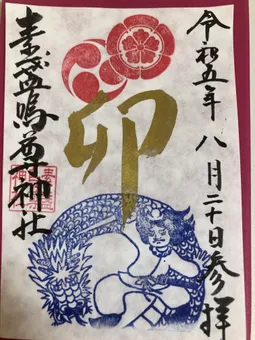 令和五年 八月二十日参拝
卯
素盞嗚尊神社